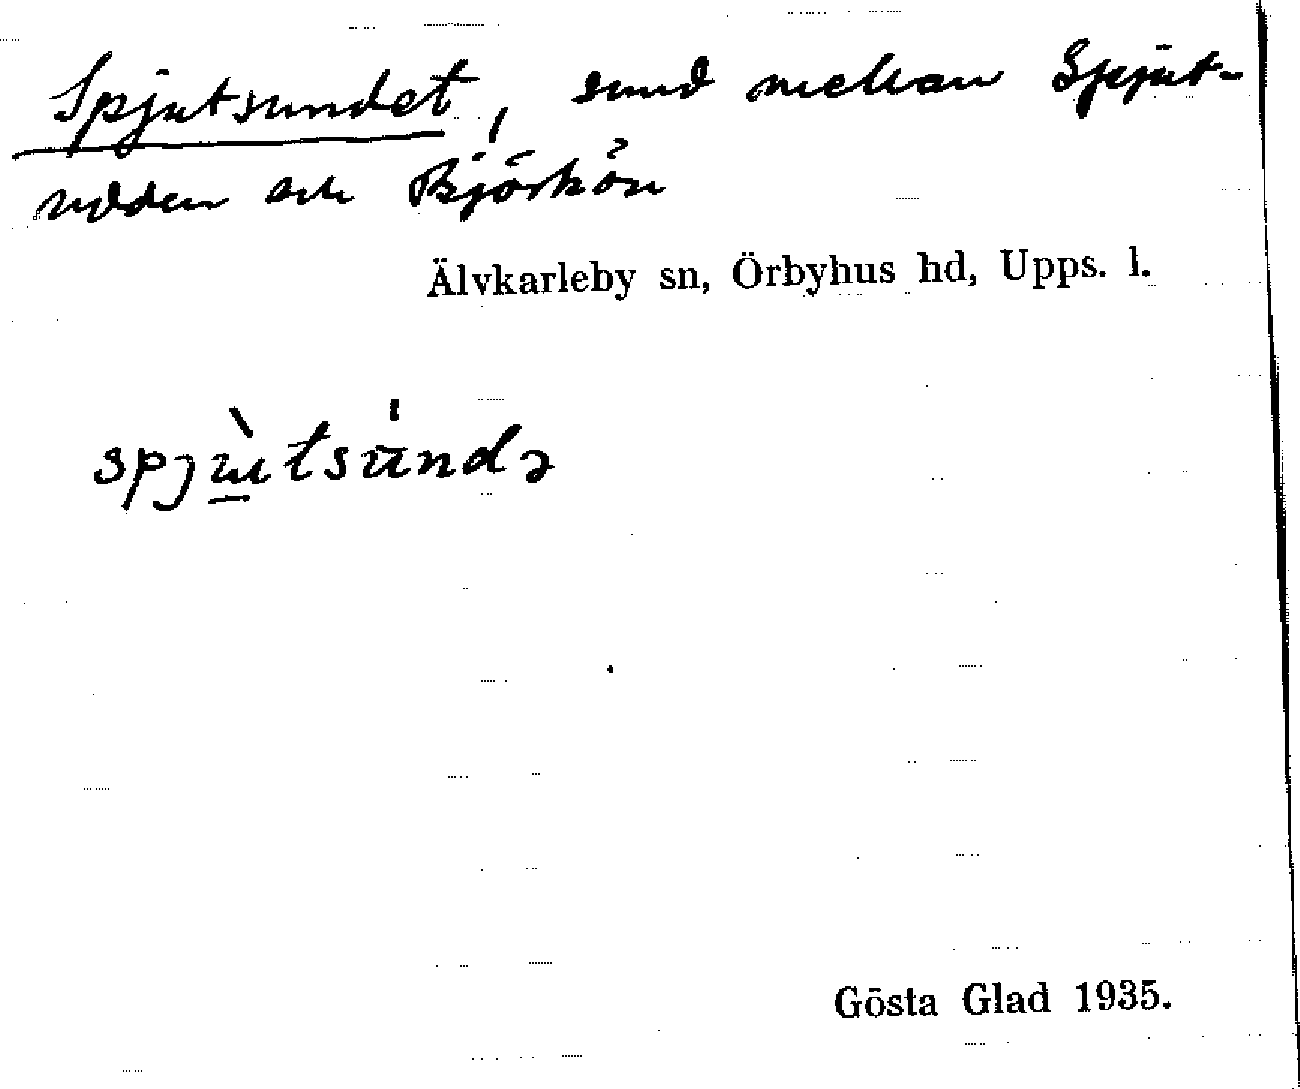 Spjutsundet, sund mellan Spjut-
udden och Björkön
Älvkarleby sn, Örbyhus hd, Upps. l.
spjùtsúndə
Gösta Glad 1935.